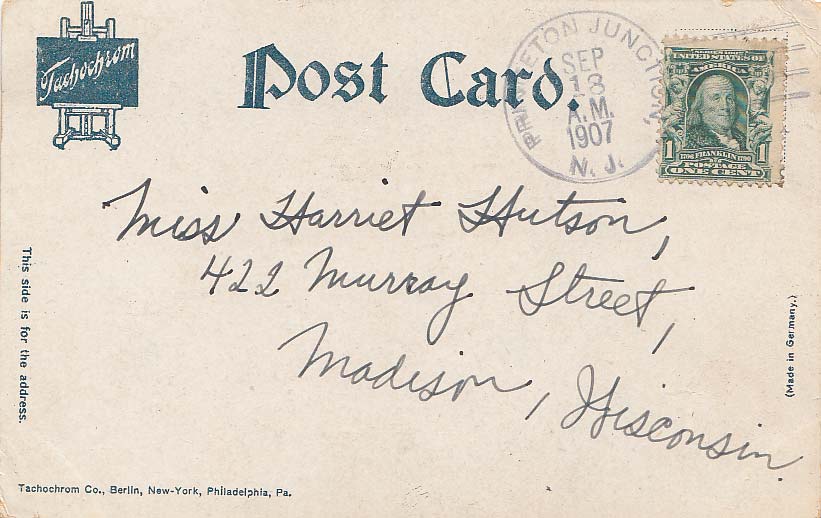 Tachochrom
Post Card.
PRINCETON JUNCTION,
SEP
18
A.M.
1907
N. J.
UNITED STATES OF
AMERICA
1 1706 FRANKLIN 1790 1
POSTAGE
ONE CENT
Miss Harriet Hutson,
422 Murray Street,
Madison, Wisconsin.
This side is for the address.
(Made in Germany.)
Tachochrom Co., Berlin, New-York, Philadelphia, Pa.